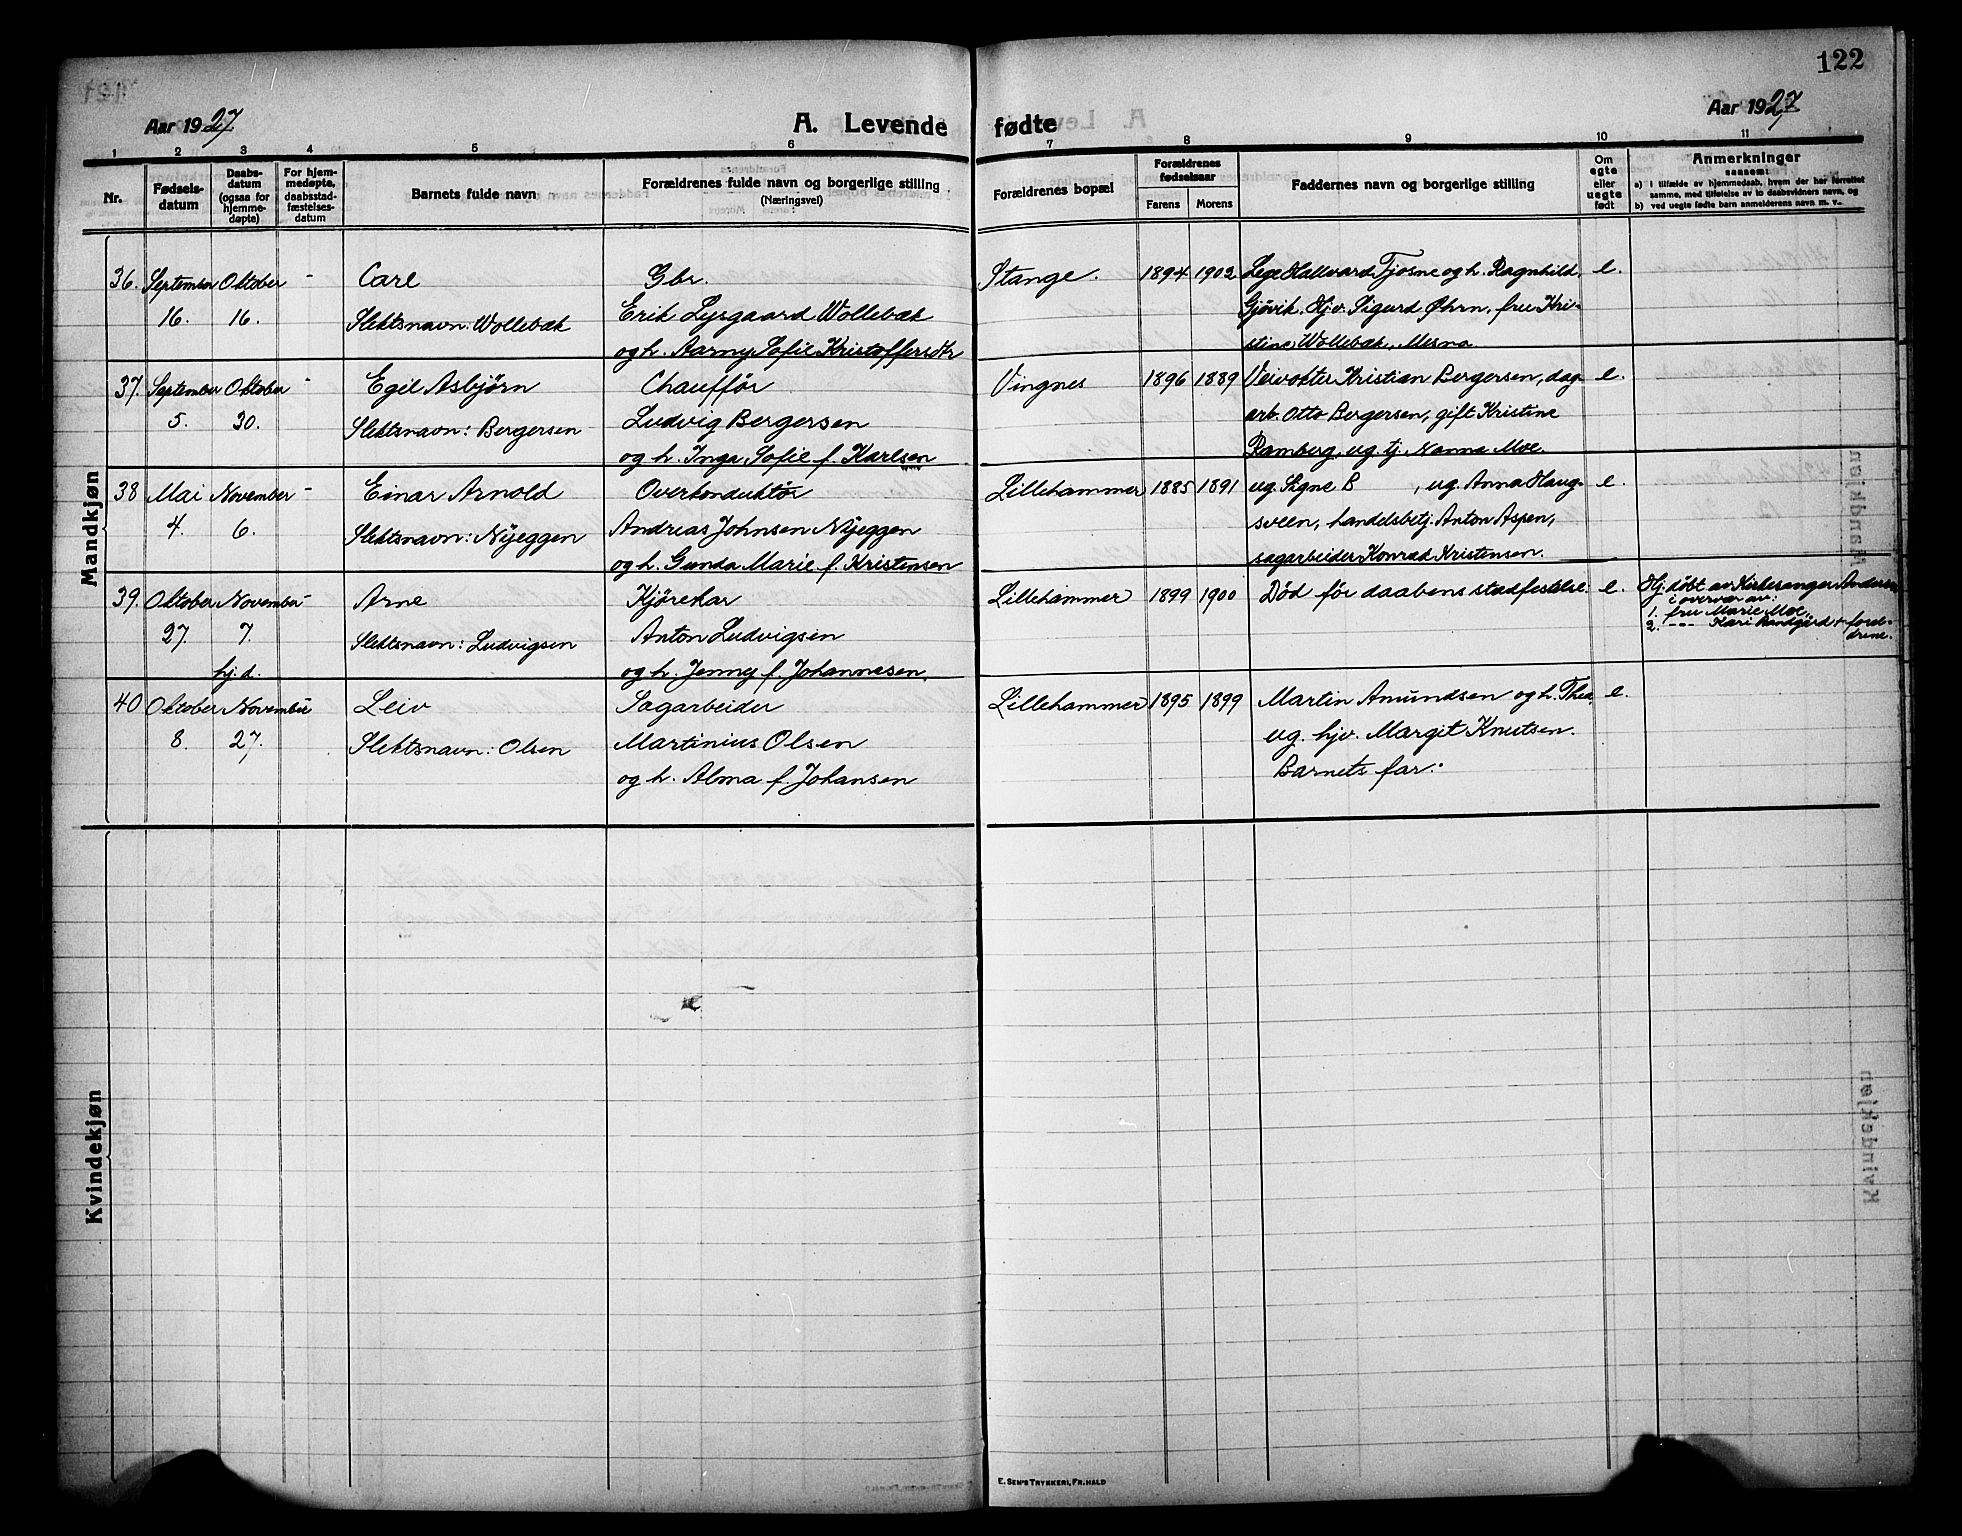 122
Aar 1927
A. Levende fødte
Aar 1927
1 2 3 4 5 6 7 8 9 10 11
Nr.
Fødsels-
datum
Daabs-
datum
(ogsaa for
hjemme-
døpte)
For hjem-
medøpte,
daabsstad-
fæstelses-
datum
Barnets fulde navn
Forældrenes fulde navn og borgerlige stilling
(Næringsvei)
Forældrenes bopæl
Forældrenes
fødselsaar
Farens Morens
Faddernes navn og borgerlige stilling
Om
egte
eller
uegte
født
Anmerkninger
saasom:
a) i tilfælde av hjemmedaab, hvem der har forrettet
samme, med tilføielse av to daabsvidners navn, og
b) ved uegte fødte barn anmelderens navn m. v..
Mandkjøn
36. September Oktober - Carl Gbr. Stange. 1894 1902 Lege Hallvard Tjosne og h. Ragnhild, e.
16. 16. Slektsnavn: Wollebæk Erik Lysgaard Wollebæk Gjøvik. Hjv. Sigurd Øhrn, fru Kri-
og h. Aarny Sofie Kristoffersdtr stine Wollebæk, Mesna
37. September Oktober - Egil Asbjørn Chauffør Vingnes 1896 1889 Veivokter Kristian Bergersen, dag- e.
5. 30. Slektsnavn: Bergersen Ludvig Bergersen arb. Otto Bergersen, gift Kristine
og h. Inga Sofie f. Karlsen Ramberg, ug. tj. Nanna Moe.
38 Mai November - Einar Arnold Overkonduktør Lillehammer 1885 1891 ug. Signe B , ug. Anna Haug- e.
4. 6. Slektsnavn: Nyeggen Andreas Johnsen Nyeggen sveen, handelsbetj. Anton Aspen,
og h. Gunda Marie f. Kristensen sagarbeider Konrad Kristensen.
39. Oktober November - Arne Kjørekar Lillehammer 1899 1900 Død før daabens stadfestelse. e. Hj. døbt av Kirkesanger Andersen
i overvær av:
1. fru Marie Moe,
27. 7. Slektsnavn: Ludvigsen Anton Ludvigsen 2. --- Kari + forel-
drene.
hj. d. og h. Jenny f. Johannesen.
40 Oktober November - Leiv Sagarbeider Lillehammer 1895 1899 Martin Amundsen og h. Thea, e.
8. 27. Slektsnavn: Olsen Martinius Olsen ug. hjv. Margit Knutsen.
og h. Alma f. Johansen Barnets far.
Kvindekjøn
E. Sem's Trykkeri, Fr.hald